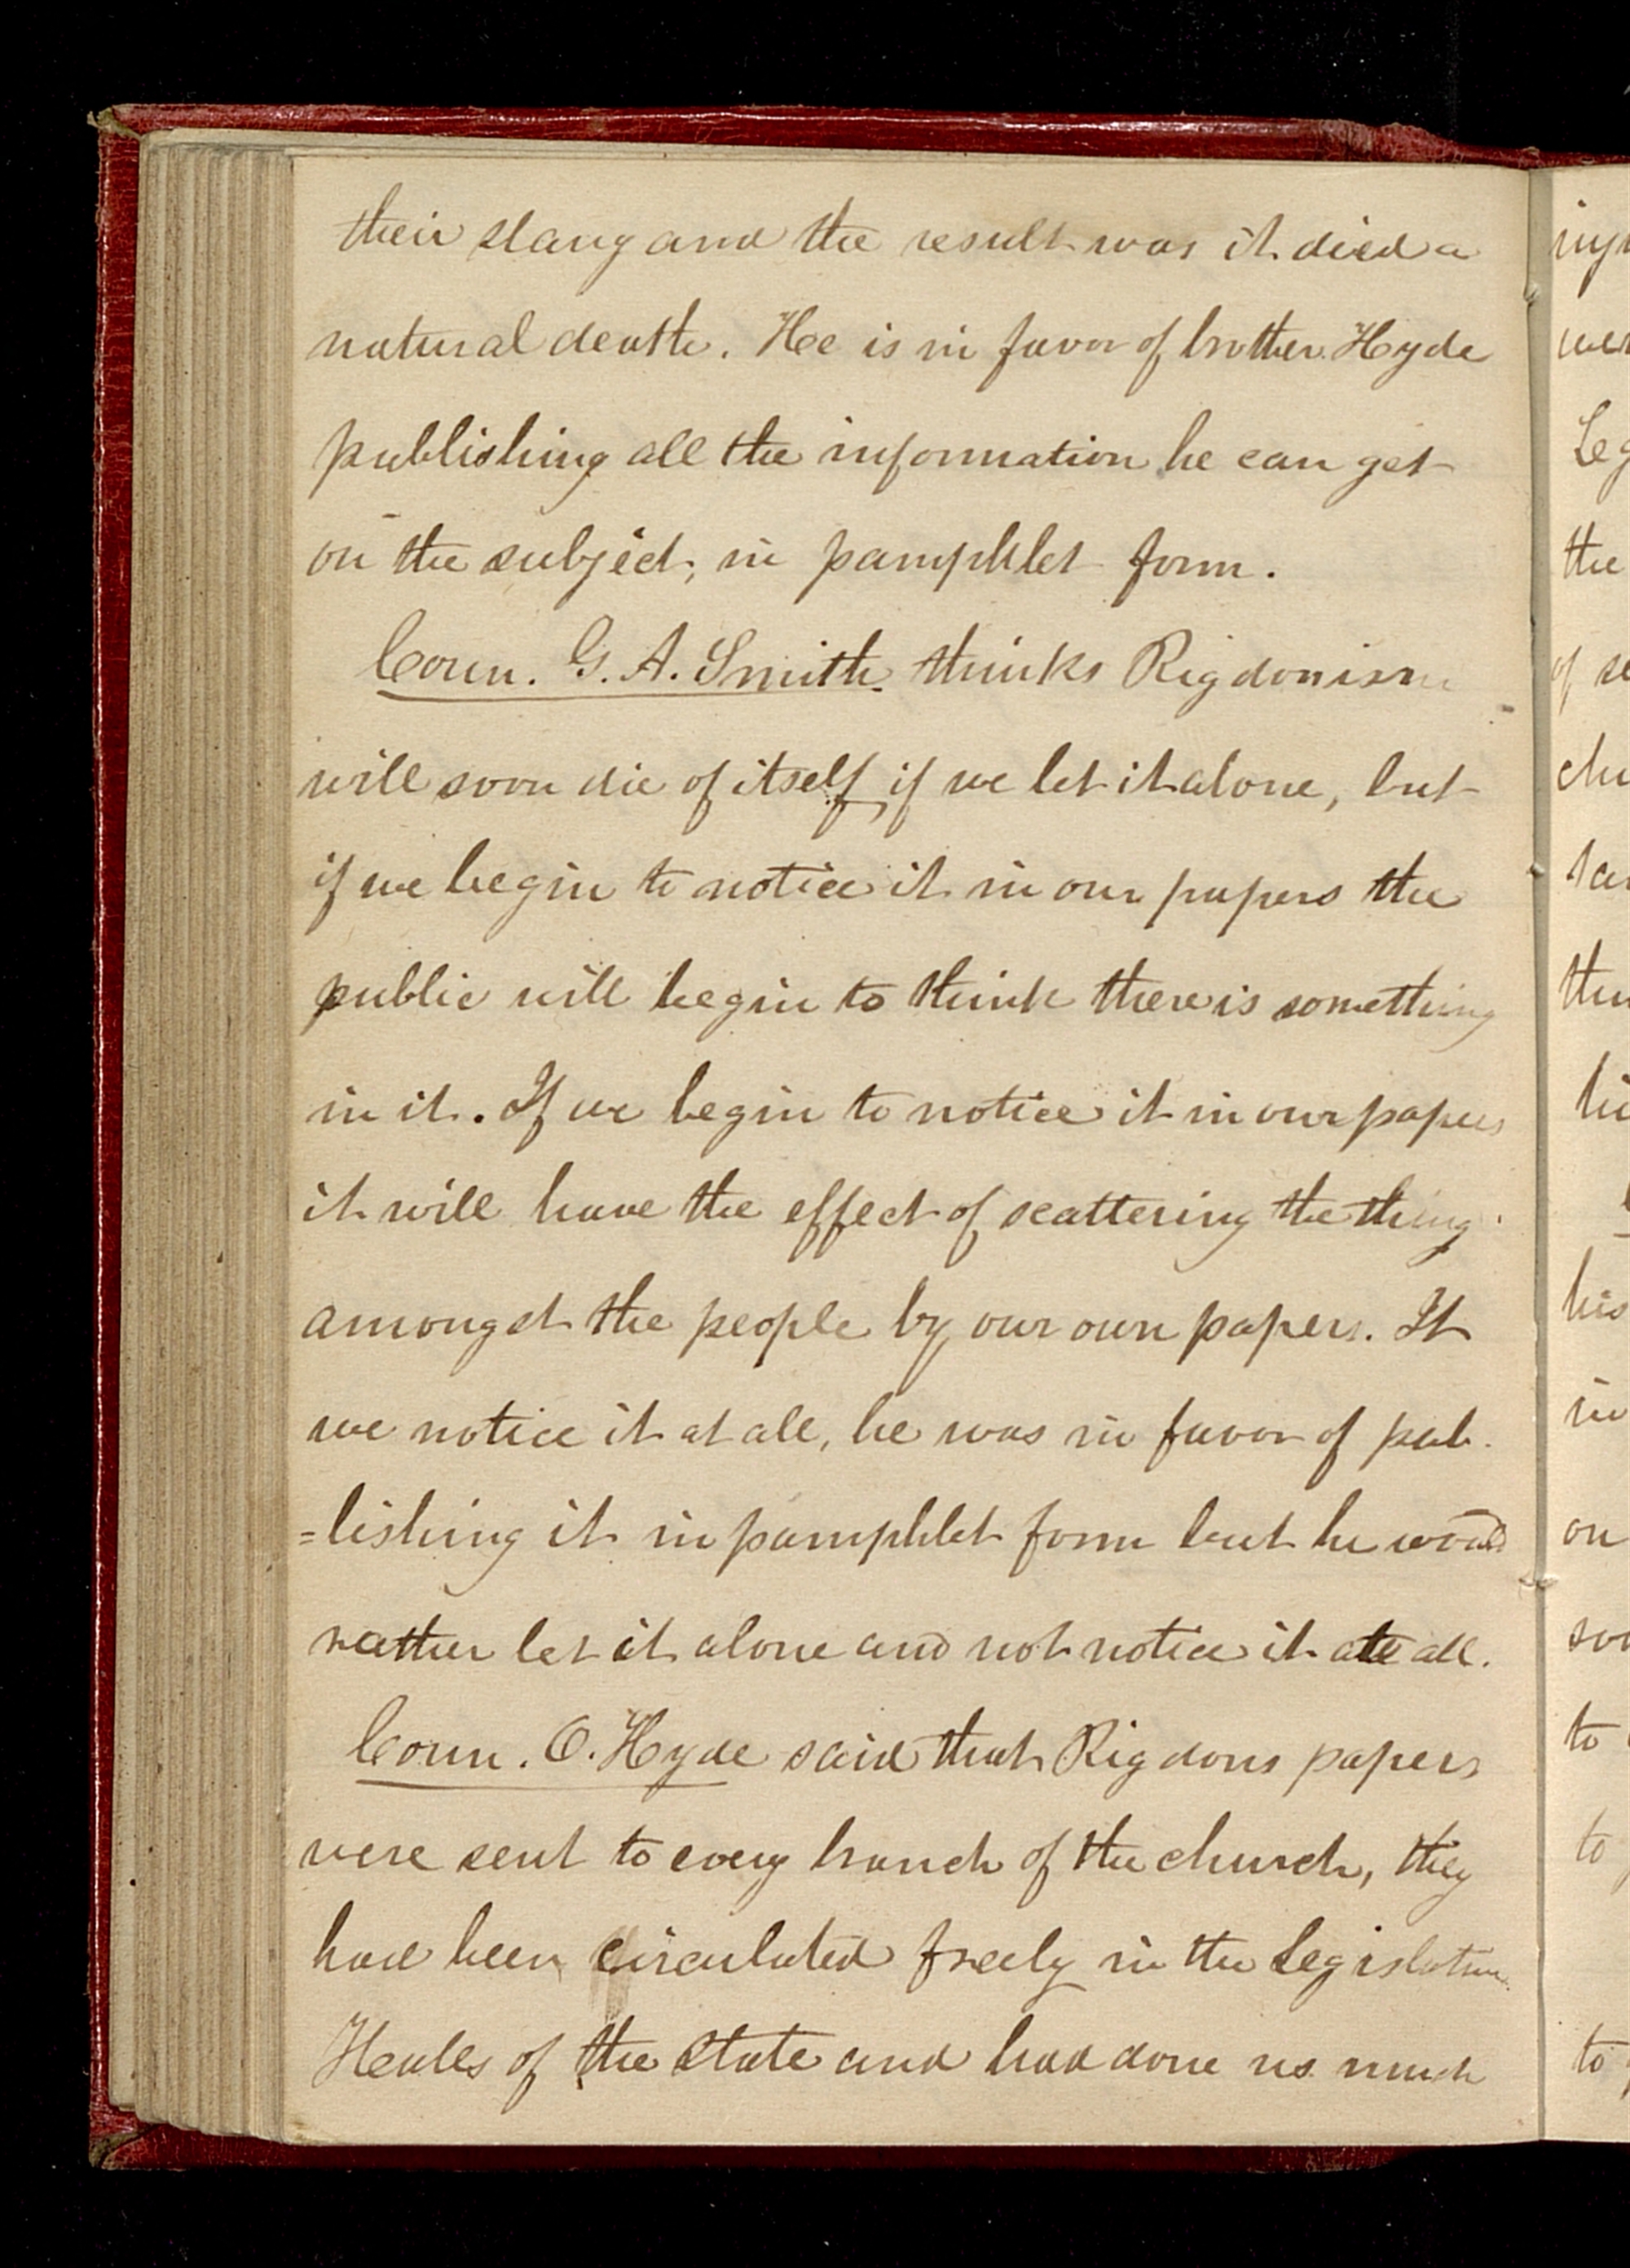 their slang and the result was it died a
natural death. He is in favor of brother Hyde
publishing all the information he can get
on the subject, in pamphlet form.
Coun. G. A. Smith thinks Rigdonism
will soon die of itself, if we let it alone, but
if we begin to notice it in our papers the
public will begin to think there is something
in it. If we begin to notice it in our papers
it will have the effect of scattering the thing
amongst the people by our own papers. If
we notice it at all, he was in favor of pub-
=lishing it in pamphlet form but he would
rather let it alone and not notice it at all.
Coun. O. Hyde said that Rigdons papers
were sent to every branch of the church, they
had been circulated freely in the Legislative
Halls of the State and had done us much
the
his
in
on
to
to
to